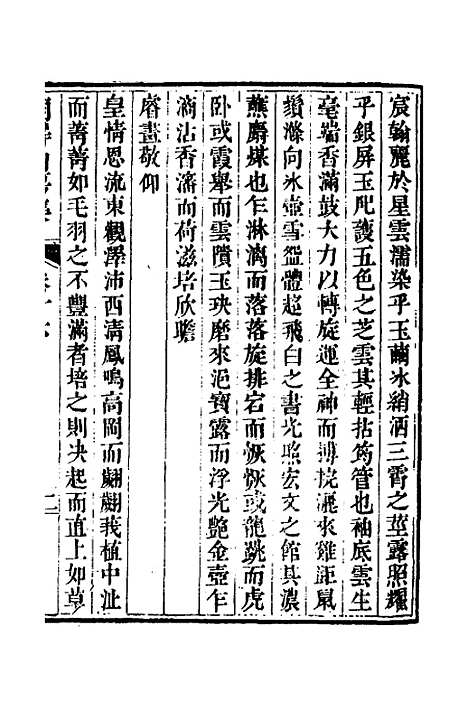 宸翰麗於星雲濡染乎玉繭冰綃洒三霄之莖露照耀
乎銀屏玉戺護五色之芝雲其輕拈筠管也袖底雲生
毫端香滿鼓大力以轉旋運全神而搏捖灑來雞距鼠
鬚滌向冰壺雪盌體超飛白之書光照宏文之館其濃
蘸麝煤也乍淋漓而落落旋排宕而恢恢或龍跳而虎
卧或霞舉而雲隤玉玦磨來浥寶露而浮光艷金壺乍
滴沾香瀋而荷滋培欣瞻
睿畫敬仰
皇情恩流東觀澤沛西清鳳鳴高岡而翽翽莪植中沚
而菁菁如毛羽之不豐滿者培之則決起而直上如草
卷十六